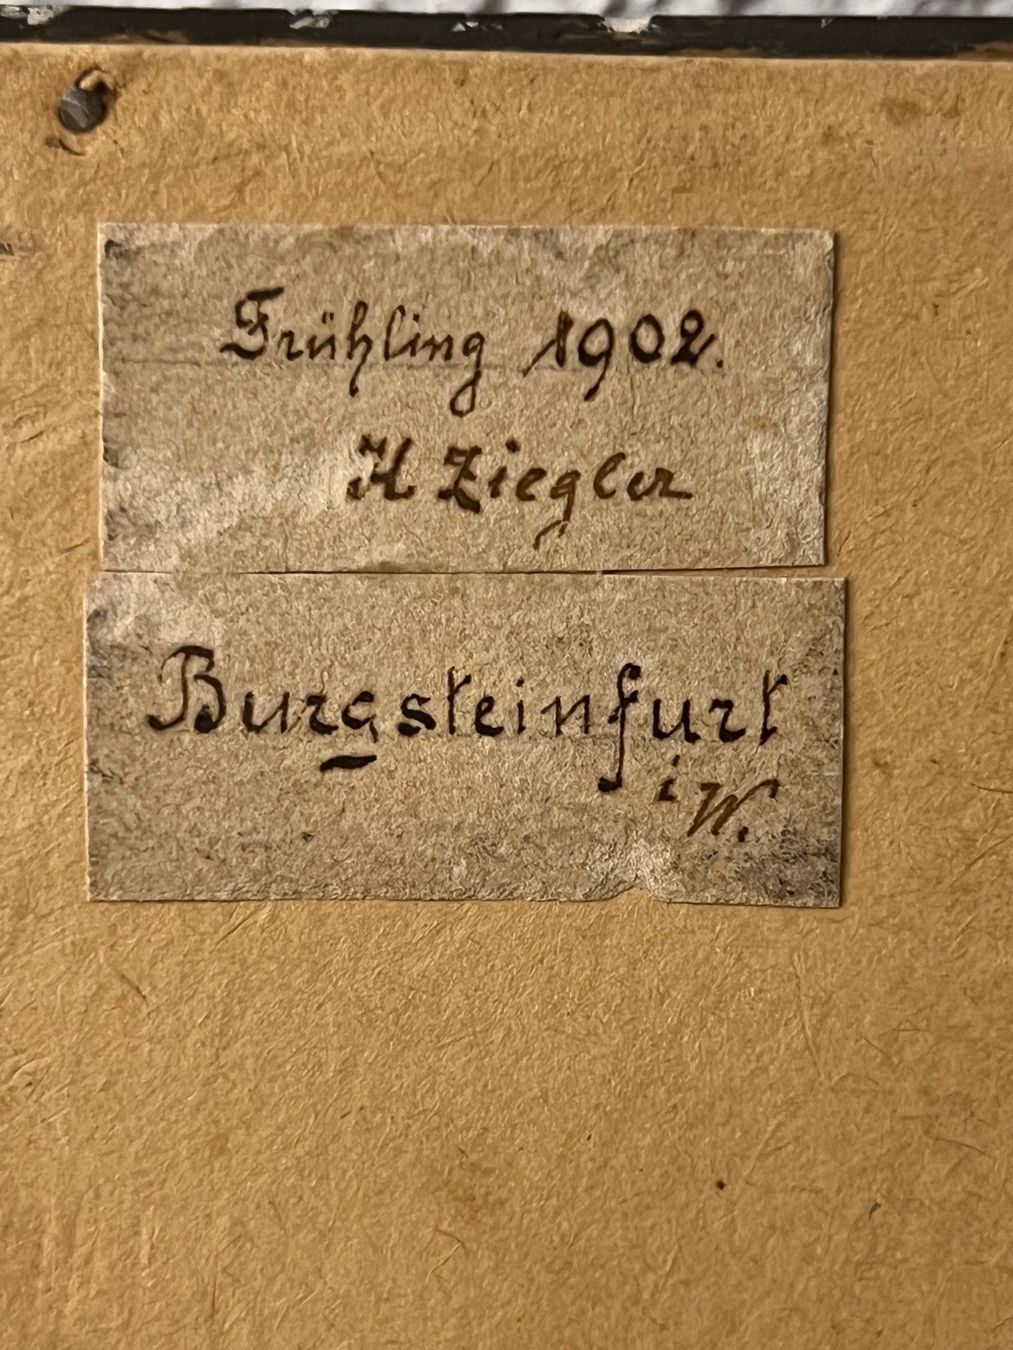 Frühling 1902.
H Ziegler
Burgsteinfurt
i W.